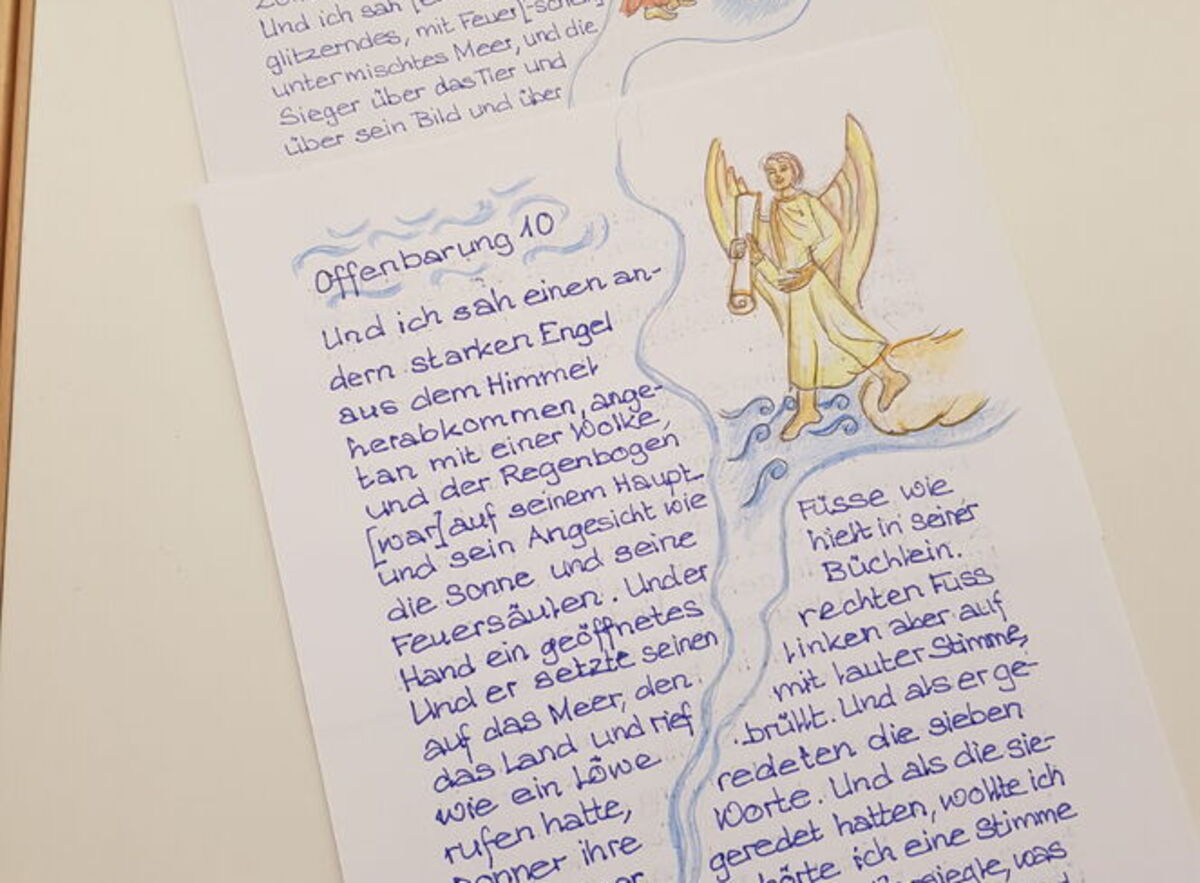 Und ich sah
glitzerndes, mit Feuer]-
untermischtes Meer, und die
Sieger über das Tier und
über sein Bild und über
Offenbarung 10
Und ich sah einen an-
dern starken Engel
aus dem Himmel
herabkommen, ange-
tan mit einer Wolke,
und der Regenbogen
[war] auf seinem Haupt
und sein Angesicht wie
die Sonne und seine Füsse wie
Feuersäulen. Und er hielt in seiner
Hand ein geöffnetes Büchlein.
Und er setzte seinen rechten Fuss
auf das Meer, den linken aber auf
das Land und rief mit lauter Stimme,
wie ein Löwe brüllt. Und als er ge-
rufen hatte, redeten die sieben
Donner ihre Worte. Und als die sie-
geredet hatten, wollte ich
hörte ich eine Stimme
was